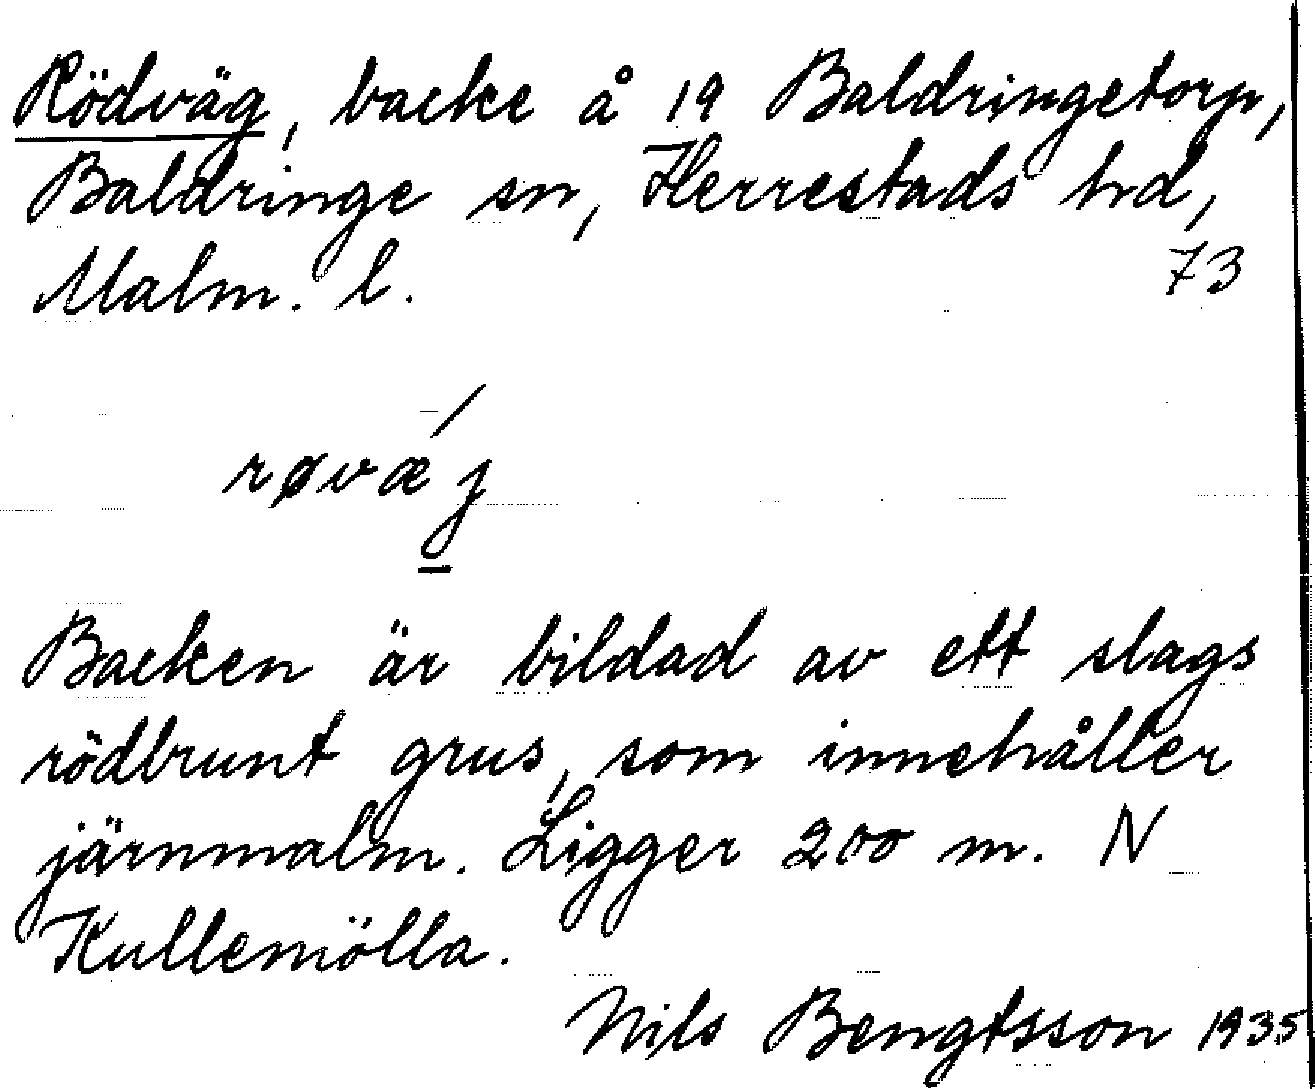 Rödväg, backe å 19 Baldringetorp,
Baldringe sn, Herrestads hd,
Malm. l. 73
røvæ´j
Backen är bildad av ett slags
rödbrunt grus, som innehåller
järnmalm. Ligger 200 m. N
Kullemölla.
Nils Bengtsson 1935